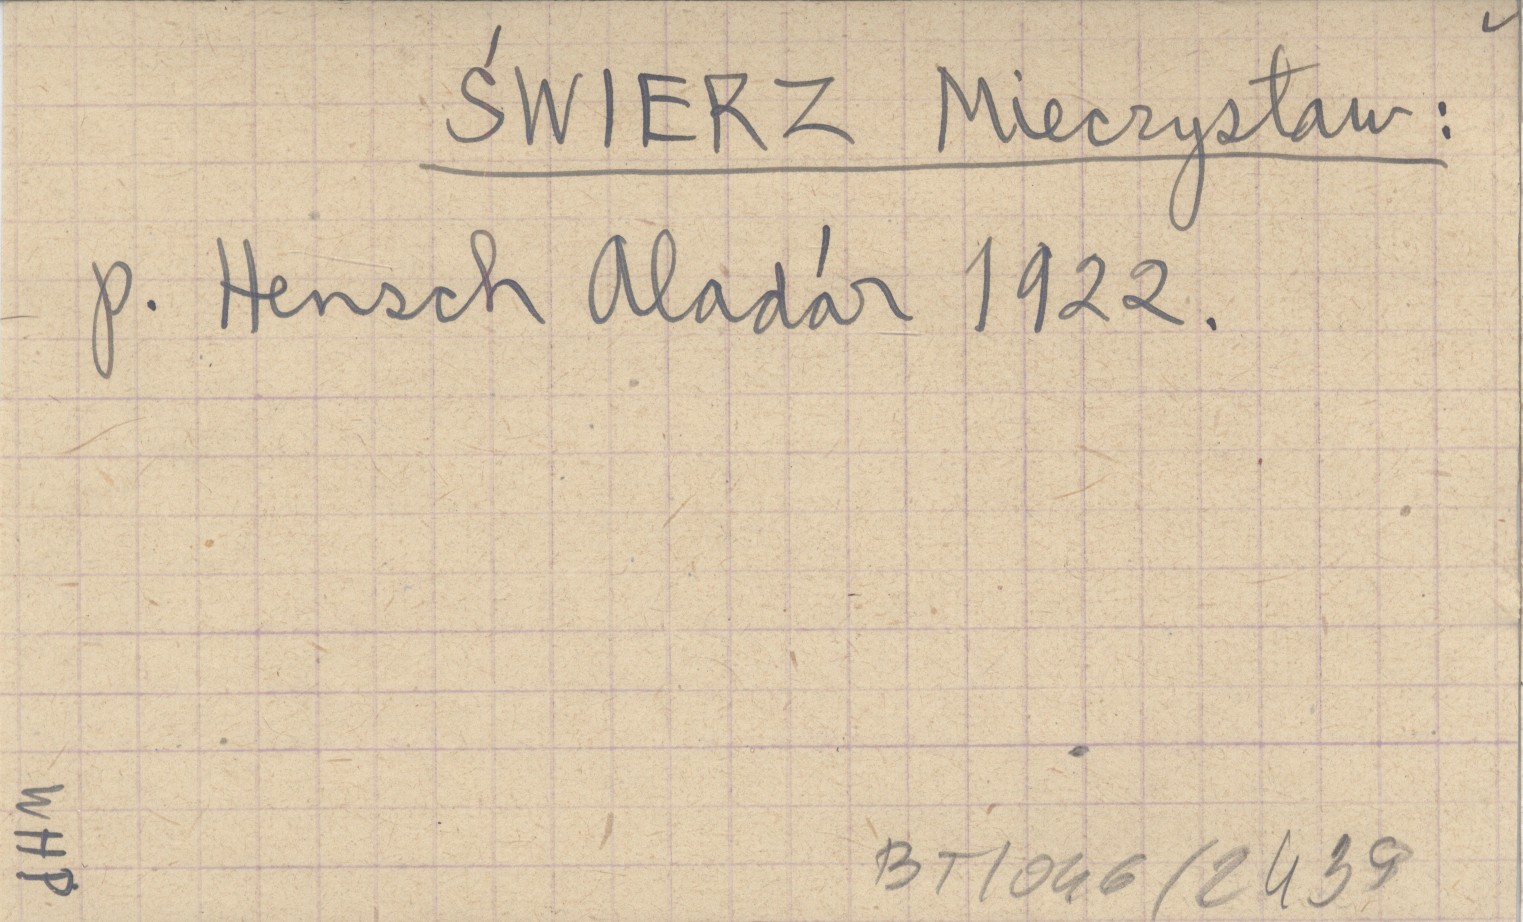 ŚWIERZ Mieczysław:
p. Hensch Aladár 1922.
WHP
BT/046/2439